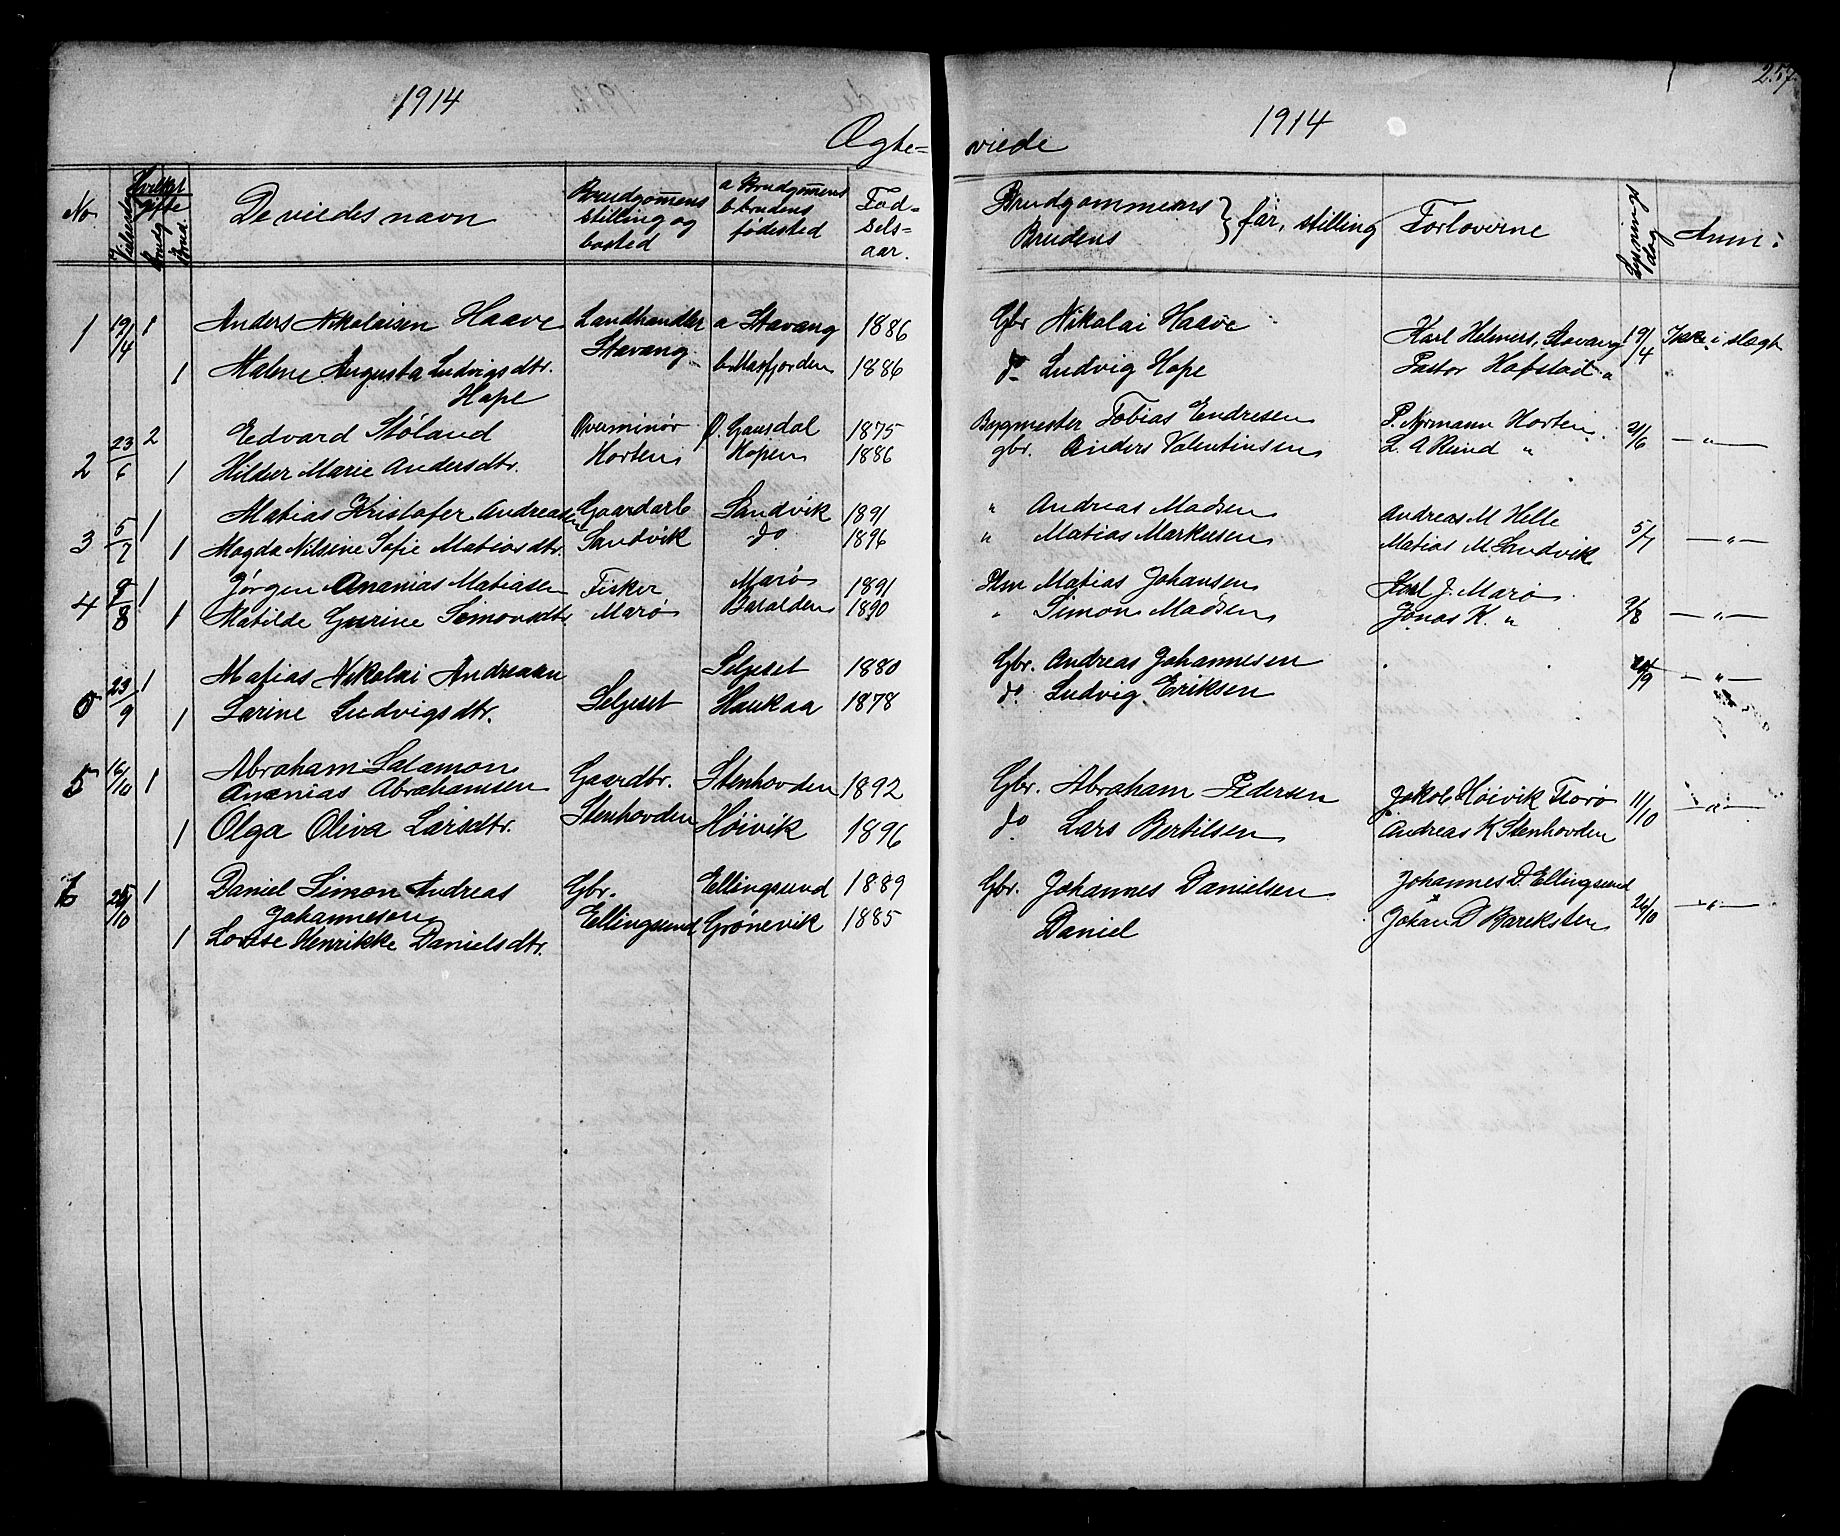 257.
1914
1914
Ægte= viede
No
Vielsesdag
Hvilket gifte
brudg
brud.
De viedes navn
Brudgom̄ens stilling og bosted
a Brudgom̄ens b. brudens fødested
Fød=sels=aar.
Brudgommens Brudens } far, stilling
Forloverne
Lysnings dag
Anm:
1 19/14 1 Anders Nikolaisen Haave Landhandler a Stavang 1886 Gbr Nikolai Haave Karl Helmers, Stavang 19/4 Ikke i slegt
1 Malene Augusta Ludvigsdtr. Stavang b. Masfjorden 1886 do Ludvig Hope Pastor Hafstad "
Hope
2 23/6 2 Edvard Støland Overminør Ø. Gausdal 1875 Bygmester Tobias Endresen P. Normann Horten 21/6 — " —
1 Hilder Marie Andersdtr. Horten Hopen 1886 gbr. Anders Valentinsen L. A Reind "
3 5/7 1 Matias Kristofer Andreasen Gaardarb Sandvik 1891 " Andreas Madsen Andreas M Helle 5/7 — " —
1 Magda Nilsine Sofie Matiasdtr. Sandvik do 1896 " Matias Markusen Matias M. Sandvik
4 9/8 1 Jørgen Ananias Matiasen Fisker Marø 1891 Matias Johansen Karl J. Marø 9/8 — " —
1 Matilde Gurine Simonsdtr Marø Batalden 1890 " Simon Madsen Jonas K. "
0 23/9 1 Matias Nikolai Andreasen Seljeset 1880 Gbr. Andreas Johannesen 24/9 — " —
1 Larine Ludvigsdtr. Seljeset Haukaa 1878 do. Ludvig Eriksen
5 16/10 1 Abraham Salamon
Ananias Abrahamsen Gaardbr. Stenhovden 1892 Gbr. Abraham Pedersen Jakob Høivik Florø 11/10 — " —
1 Olga Oliva Larsdtr. Stenhovden Høivik 1896 do Lars Bertilsen Andreas K Stenhovden
6 25/10 1 Daniel Simon Andreas Gbr. Ellingsund 1889 Gbr. Johannes Danielsen Johannes D. Ellingsund 26/10 — " —
Johannesen Ellingsund Grønevik 1885 Daniel Johan D Bareksten
1 Lovise Henrikke Danielsdtr.